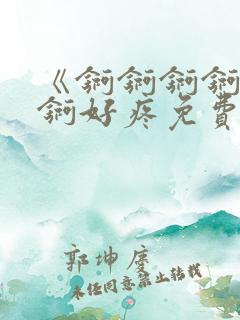 《锕锕锕锕
锕好疼免費
郭坤度
未任同意禁止转载